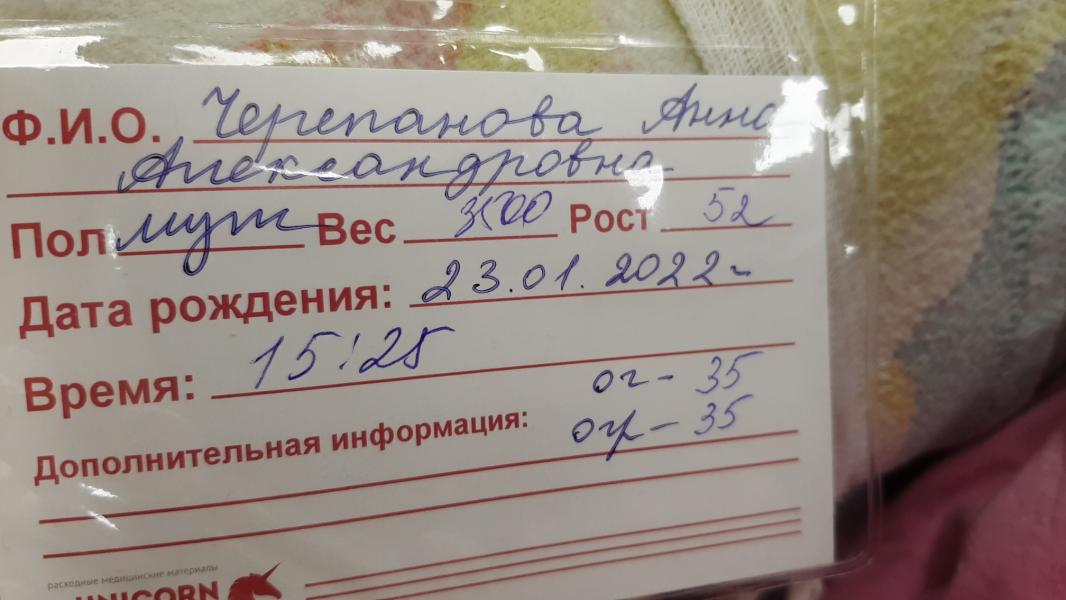 Ф.И.О. Черепанова Анна
Александровна
Пол муж Вес 3500 Рост 52
Дата рождения: 23.01.2022г
Время: 15:25
ог - 35
Дополнительная информация: огр - 35
расходные медицинские материалы
UNICORN